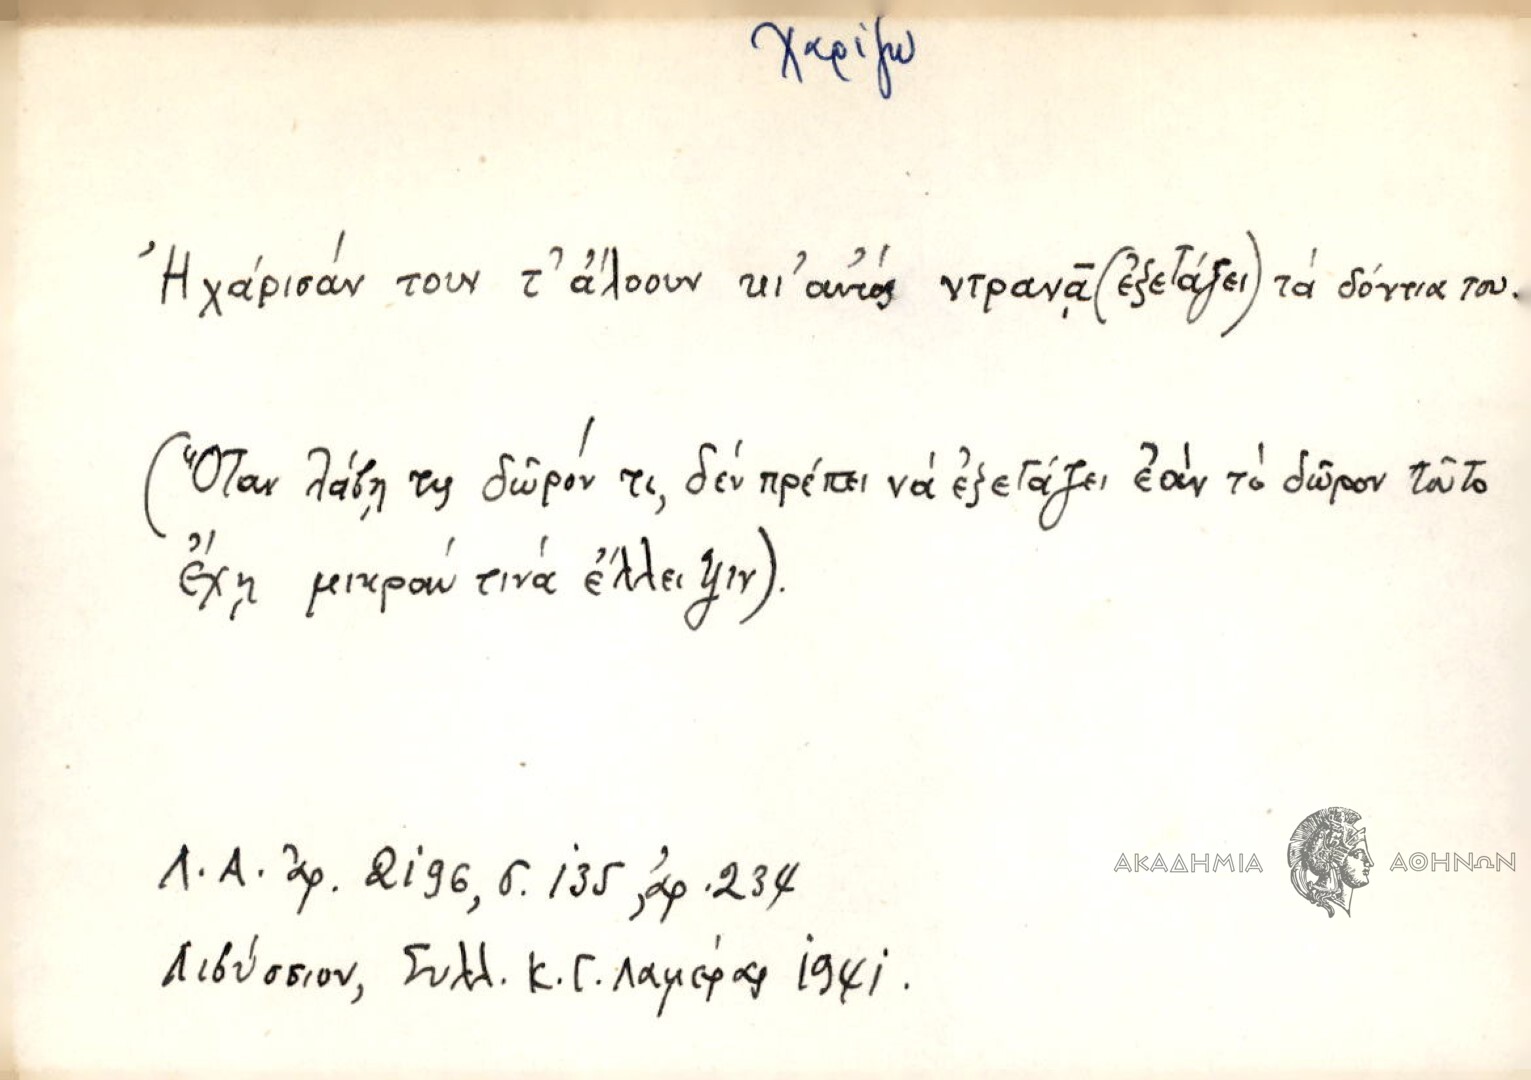 χαρίζω
Ἠχάρισάν τουν τ' ἄλοουν κι' αὐτός ντρανᾷ (ἐξετάζει) τά δόντια του.
(Ὅταν λάβῃ τις δῶρόν τι, δέν πρέπει νά ἐξετάζει ἐάν τό δῶρον τοῦτο
ἔχῃ μικράν τινά ἔλλειψιν).
Λ. Α. ἀρ. 2196, σ. 135, ἀρ. 234
Λιβύσσιον, Συλλ. Κ. Γ. Λαμέρας 1941.
ΑΚΑΔΗΜΙΑ ΑΘΗΝΩΝ